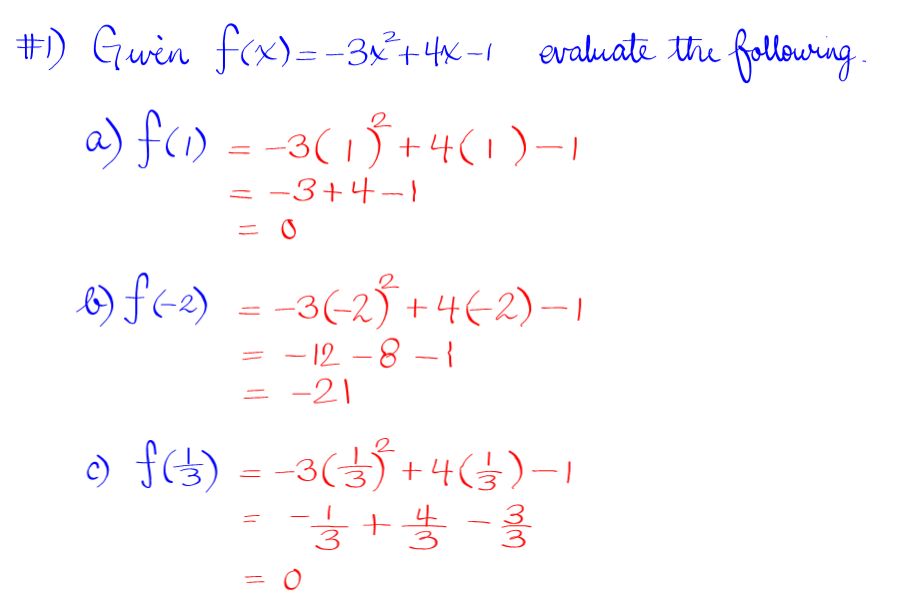 #1) Given f(x) = -3x² + 4x - 1 evaluate the following.
a) f(1) = -3(1)² + 4(1) - 1
= -3 + 4 - 1
= 0
b) f(-2) = -3(-2)² + 4(-2) - 1
= -12 - 8 - 1
= -21
c) f(1/3) = -3(1/3)² + 4(1/3) - 1
= -1/3 + 4/3 - 3/3
= 0